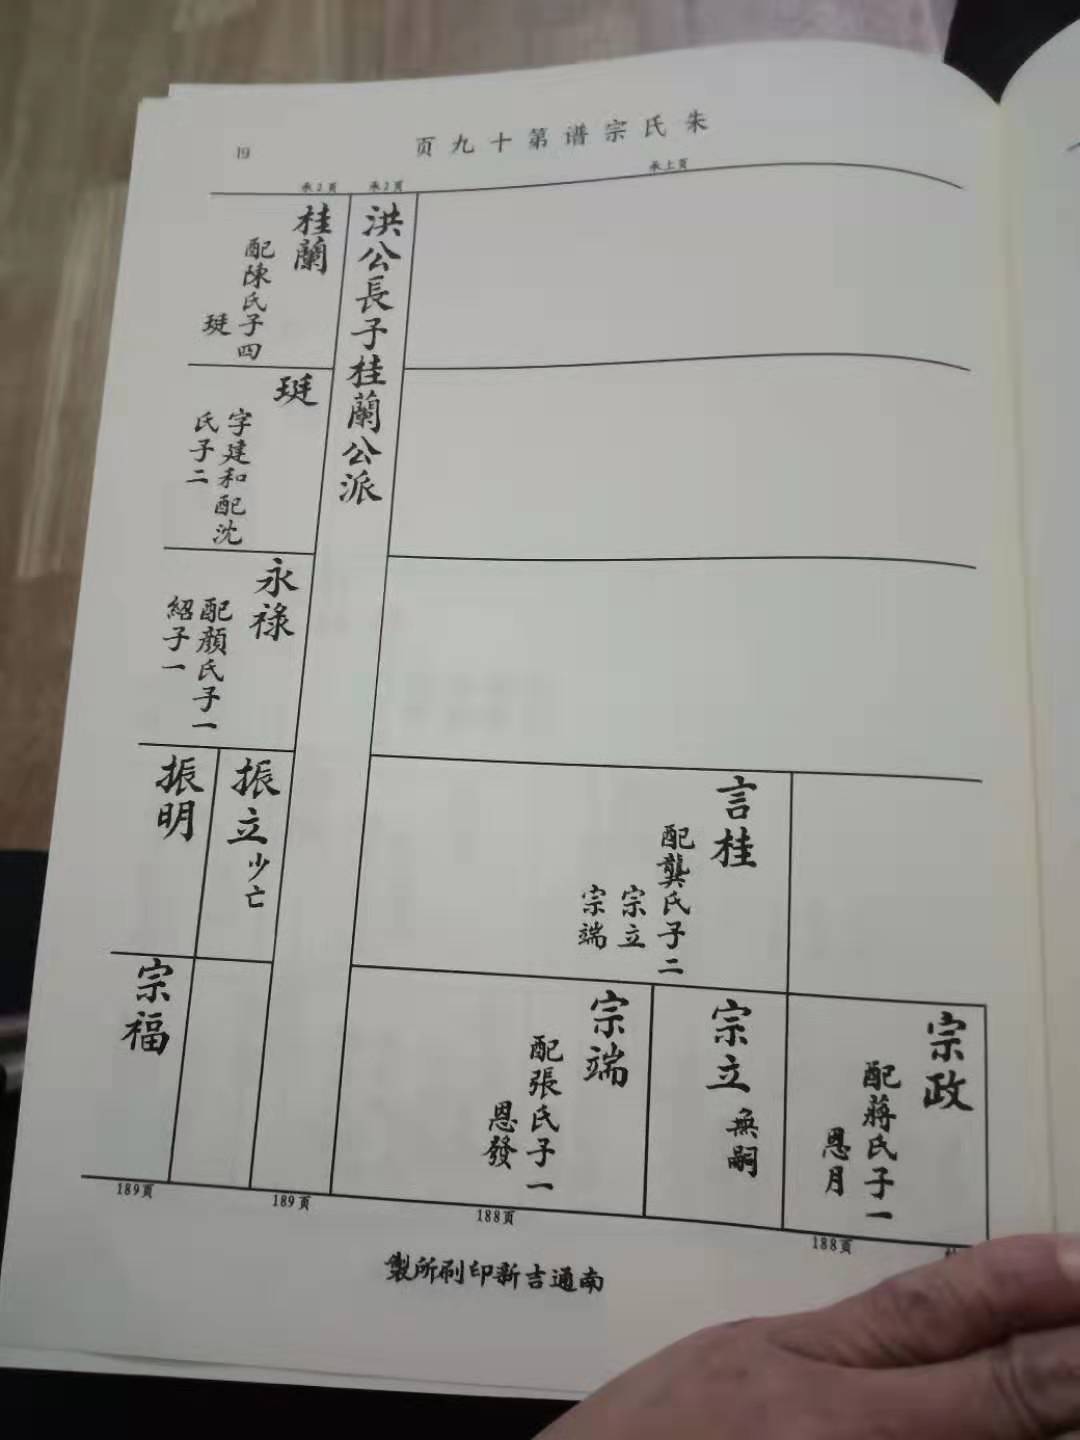 朱氏宗谱第十九页
19
承上页
宗政
配蔣氏子一
恩月
188页
言桂
配龔氏子二
宗立
宗端
宗立
無嗣
宗端
配張氏子一
恩發
188页
承2页
洪公長子桂蘭公派
承2页
桂蘭
配陳氏子四
珽
珽
字建和配沈
氏子二
永祿
配顏氏子一
紹子一
振立
少亡
189页
振明
宗福
189页
南通吉新印刷所製